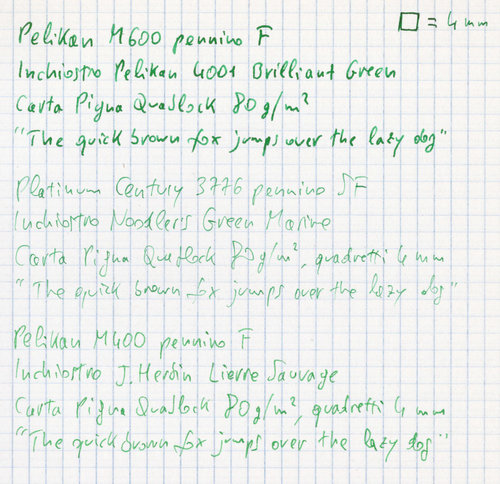 Pelikan M600 pennino F
□ = 4 mm
Inchiostro Pelikan 4001 Brilliant Green
Carta Pigna Quablock 80 g/m²
"The quick brown fox jumps over the lazy dog"
Platinum Century 3776 pennino SF
Inchiostro Noodler's Green Marine
Carta Pigna Quablock 80 g/m², quadretti 4 mm
"The quick brown fox jumps over the lazy dog"
Pelikan M400 pennino F
Inchiostro J. Herbin Lierre Sauvage
Carta Pigna Quablock 80 g/m², quadretti 4 mm
"The quick brown fox jumps over the lazy dog"